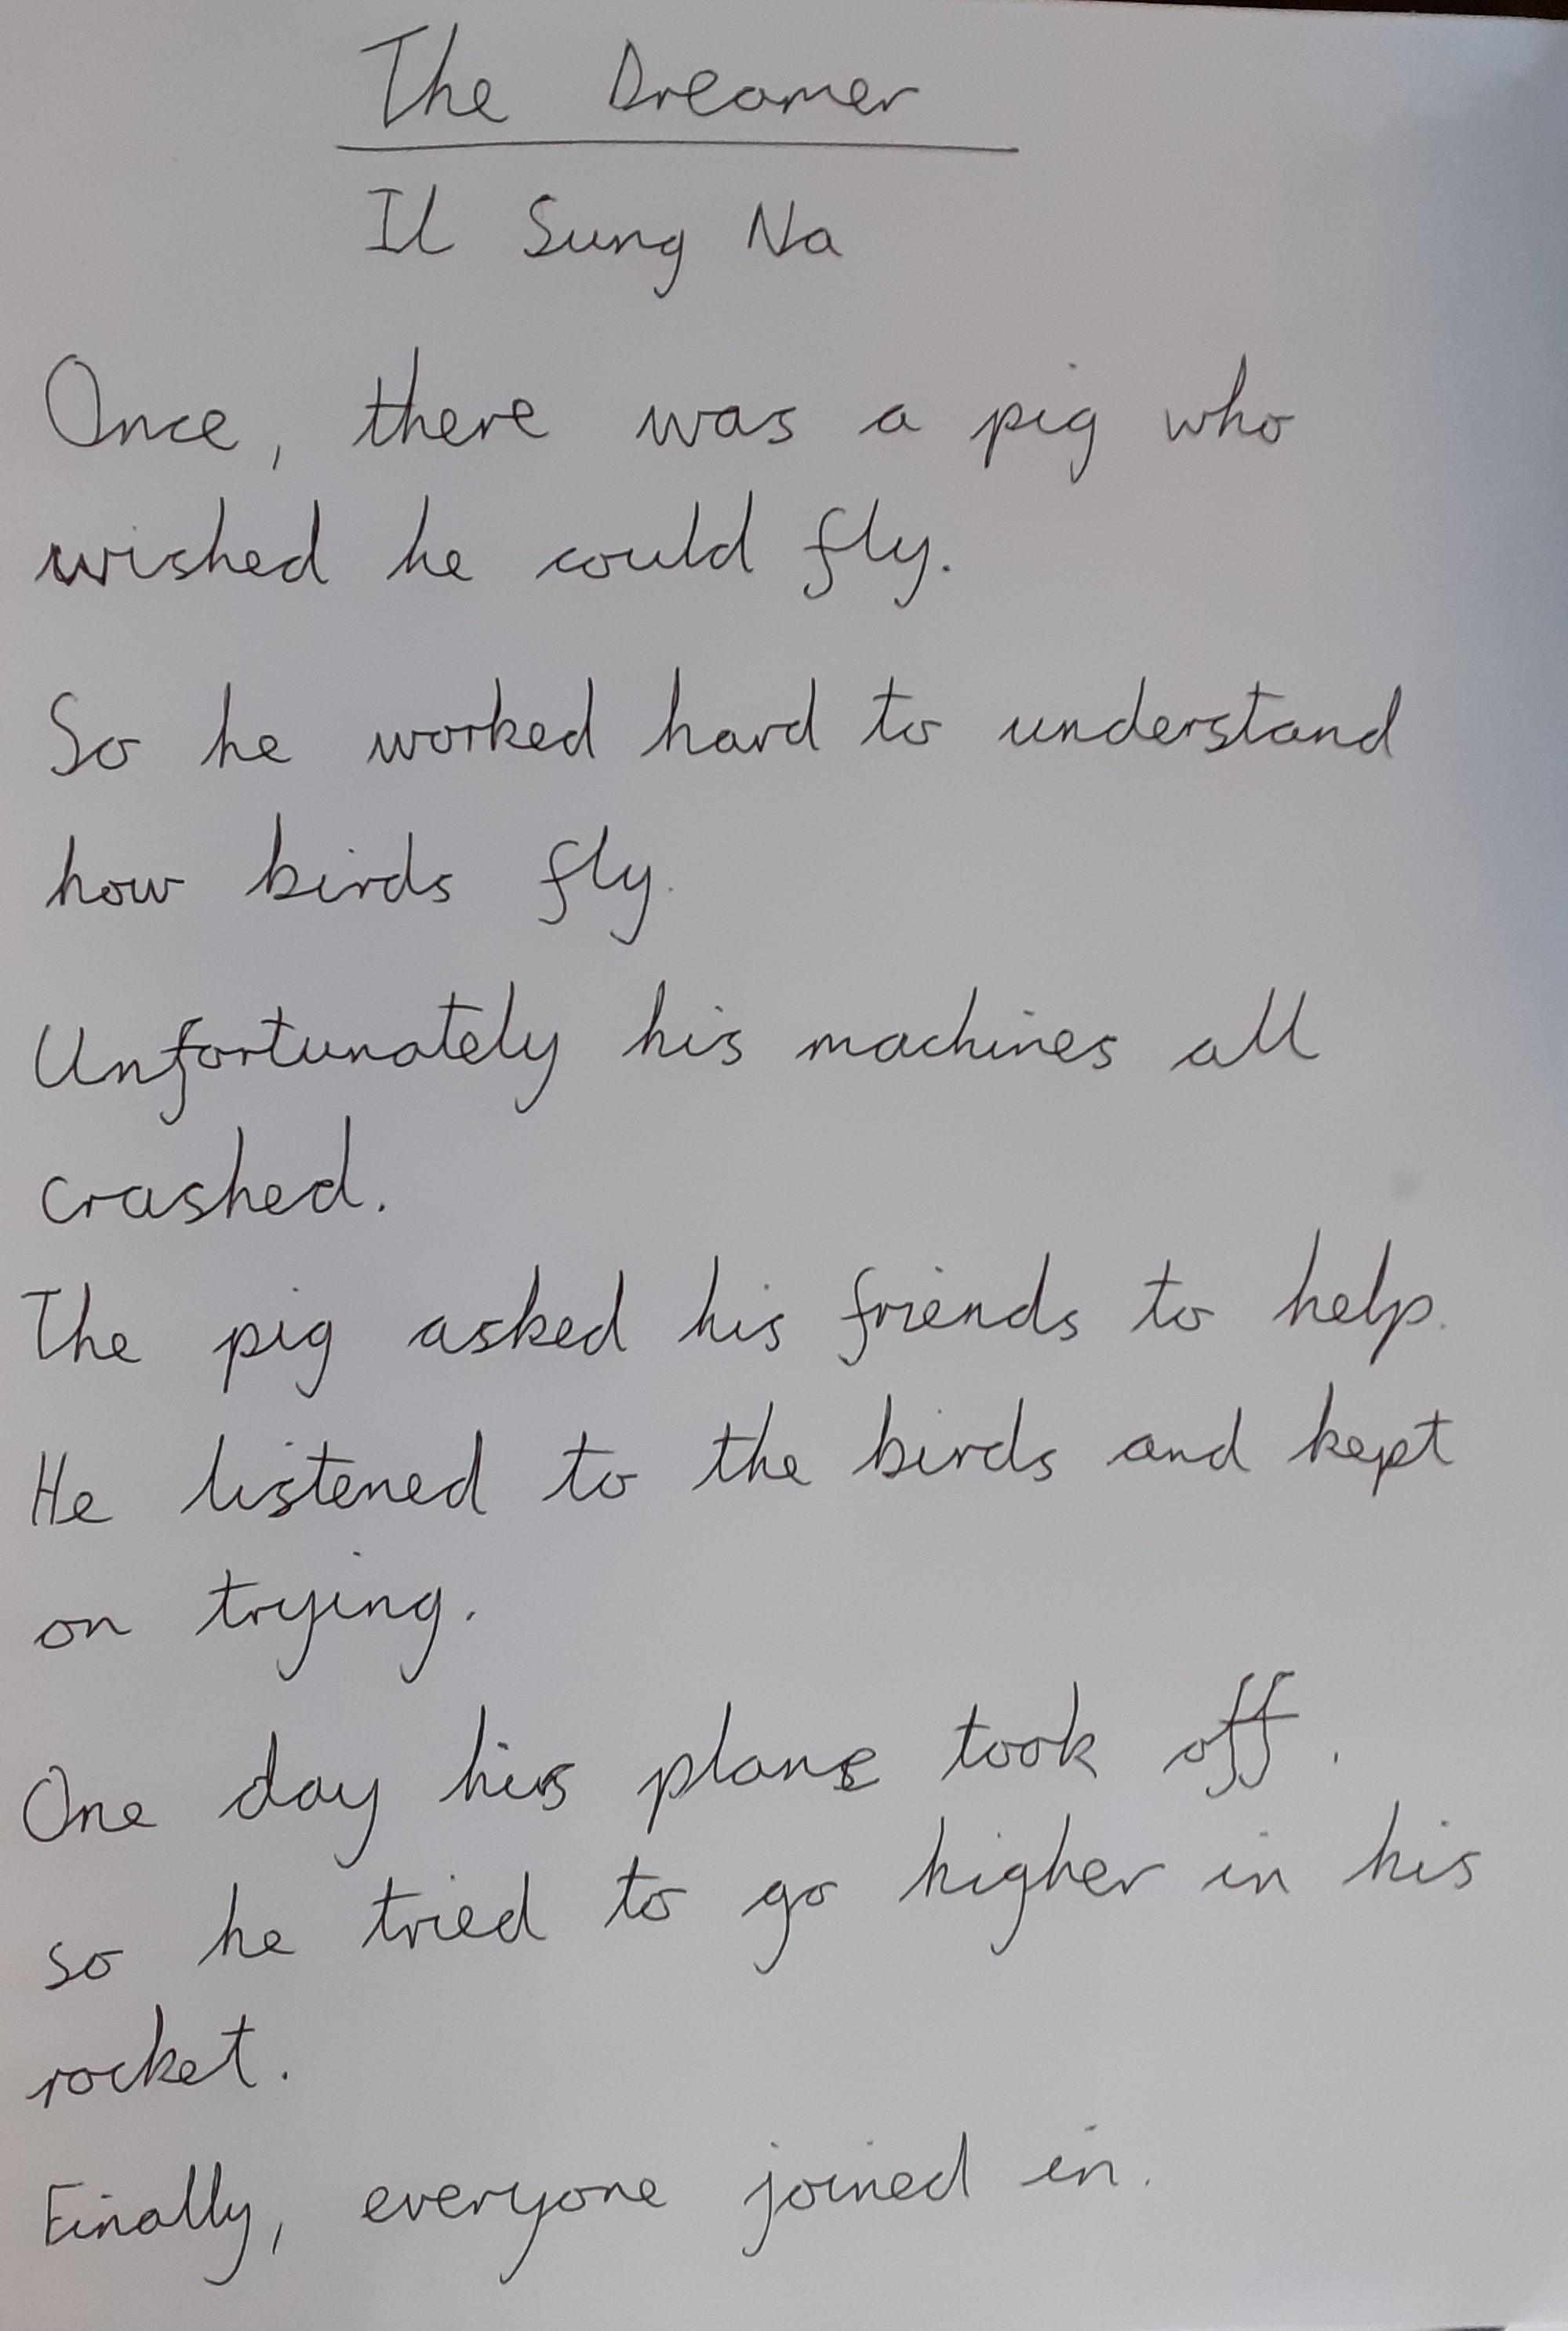 The Dreamer
Il Sung Na
Once, there was a pig who
wished he could fly.
So he worked hard to understand
how birds fly.
Unfortunately his machines all
crashed.
The pig asked his friends to help.
He listened to the birds and kept
on trying.
One day his plane took off.
so he tried to go higher in his
rocket.
Finally, everyone joined in.